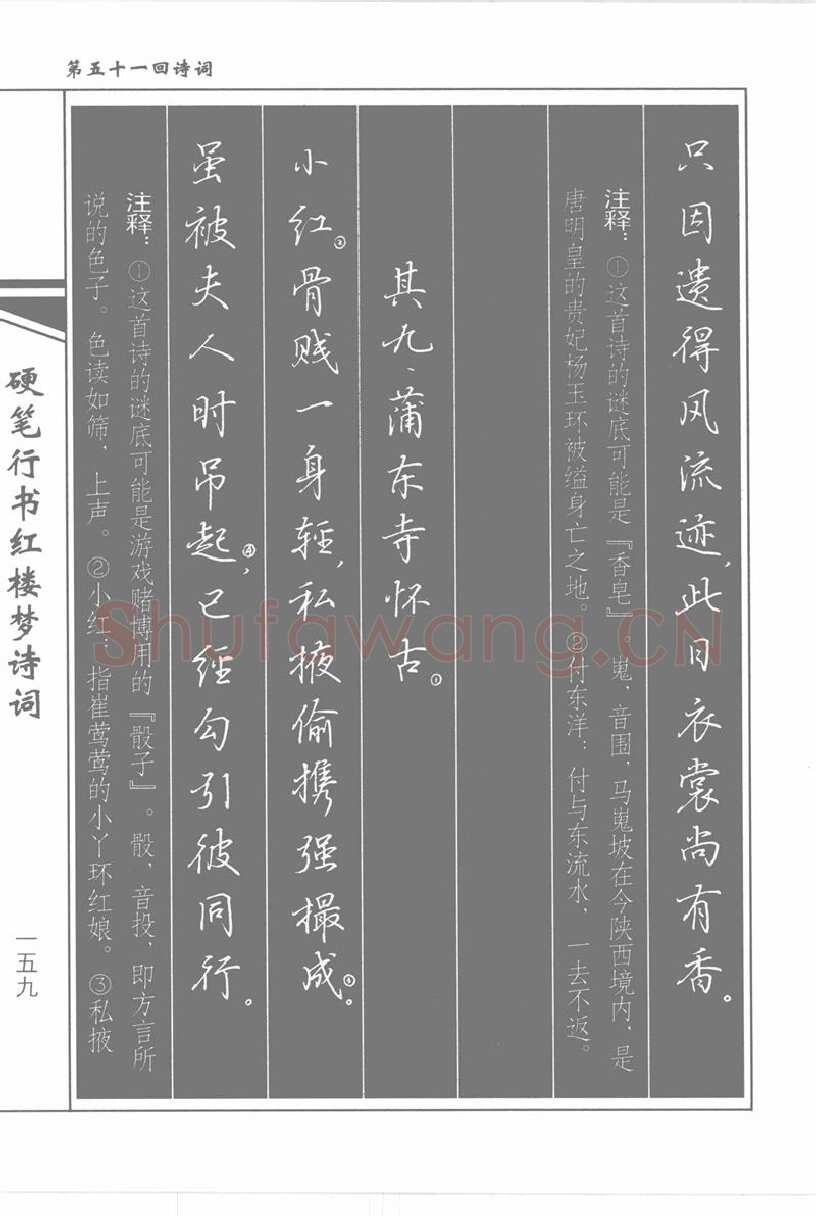 第五十一回诗词
只因遗得风流迹，此日衣裳尚有香。
注释：①这首诗的谜底可能是『香皂』。嵬，音围，马嵬坡在今陕西境内，是
唐明皇的贵妃杨玉环被缢身亡之地。②付东洋：付与东流水，一去不返。
其九、蒲东寺怀古①。
小红②。骨贱一身轻，私掖偷携强撮成③。
虽被夫人时吊起④，已经勾引彼同行。
注释：①这首诗的谜底可能是游戏赌博用的『骰子』。骰，音投，即方言所
说的色子。色读如筛，上声。②小红：指崔莺莺的小丫环红娘。③私掖
硬笔行书红楼梦诗词
一五九
Shufawang.CN